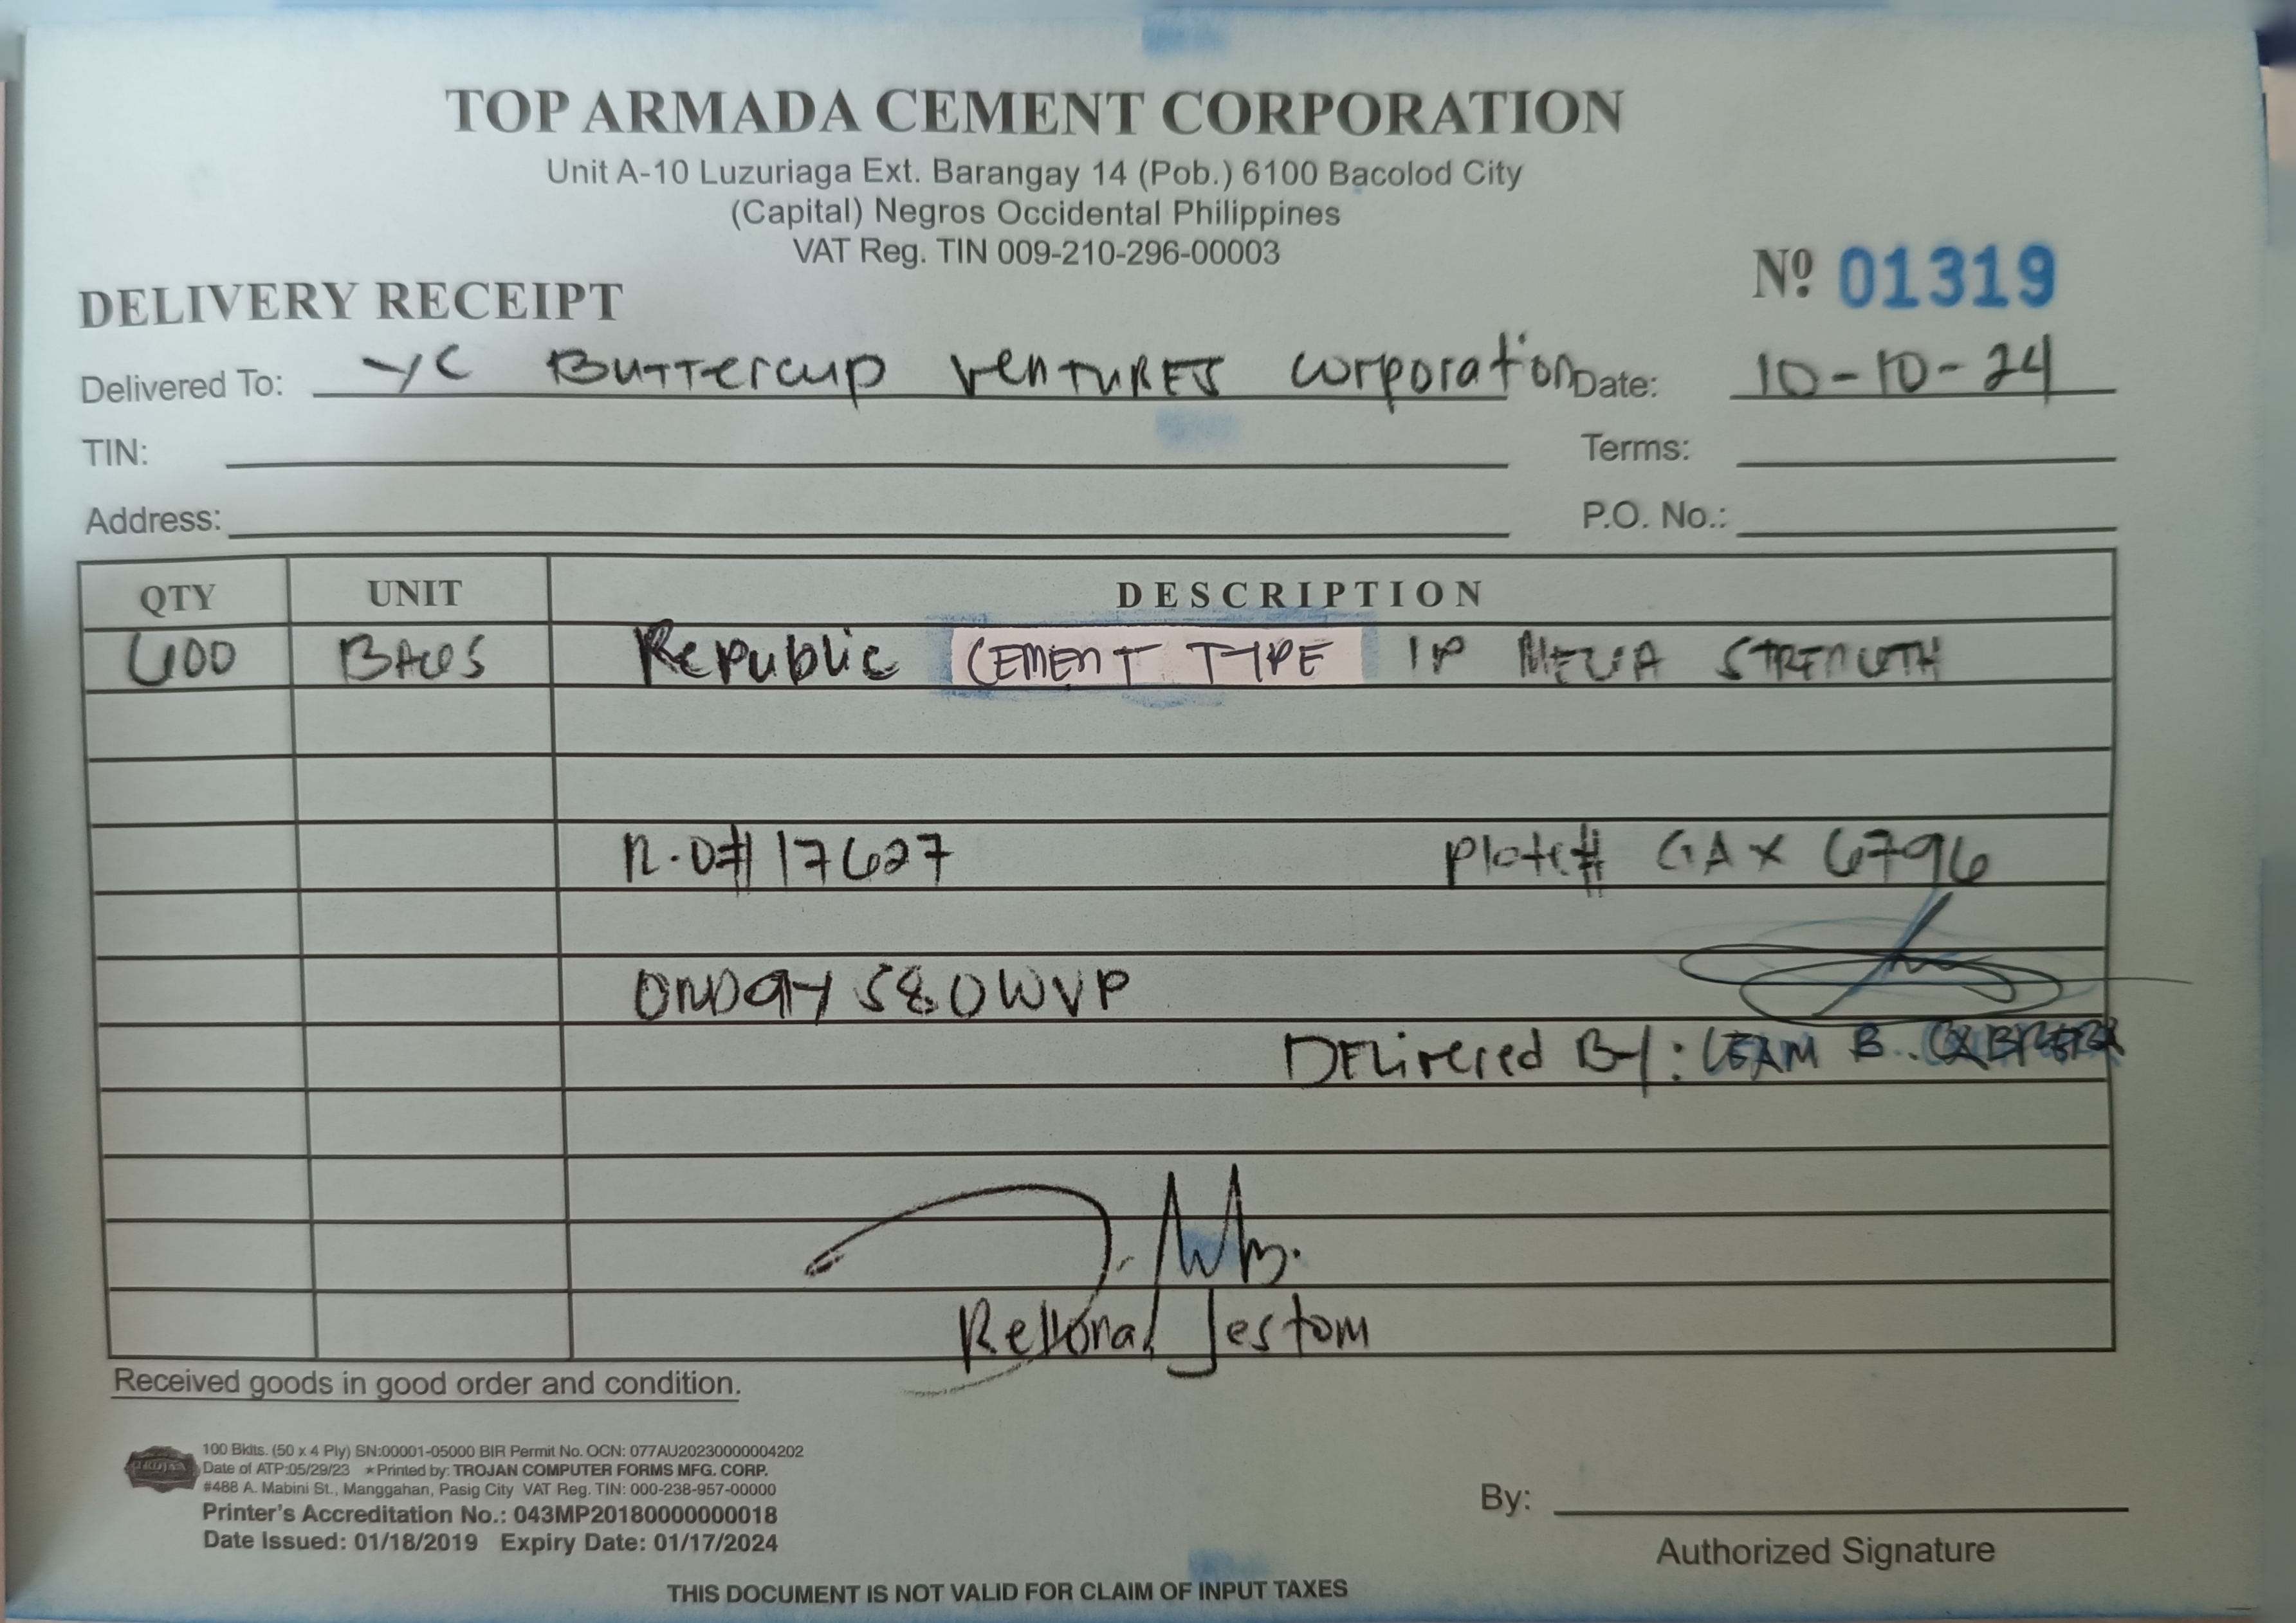 TOP ARMADA CEMENT CORPORATION
Unit A-10 Luzuriaga Ext. Barangay 14 (Pob.) 6100 Bacolod City
(Capital) Negros Occidental Philippines
VAT Reg. TIN 009-210-296-00003
Nº 01319
DELIVERY RECEIPT
Delivered To: YC Buttercup Ventures Corporation Date: 10-10-24
TIN: Terms:
Address: P.O. No.:
QTY UNIT DESCRIPTION
600 BAGS Republic CEMENT TYPE 1P MEGA STRENGTH
R.O# 17627 Plate# GAX 6796
ONDAY 580WVP
Delivered By: B.
Jestom
Received goods in good order and condition.
100 Bklts. (50 x 4 Ply) SN:00001-05000 BIR Permit No. OCN: 077AU20230000004202
Date of ATP:05/29/23 ★Printed by: TROJAN COMPUTER FORMS MFG. CORP.
#488 A. Mabini St., Manggahan, Pasig City VAT Reg. TIN: 000-238-957-00000
Printer's Accreditation No.: 043MP20180000000018
Date Issued: 01/18/2019 Expiry Date: 01/17/2024
By:
Authorized Signature
THIS DOCUMENT IS NOT VALID FOR CLAIM OF INPUT TAXES